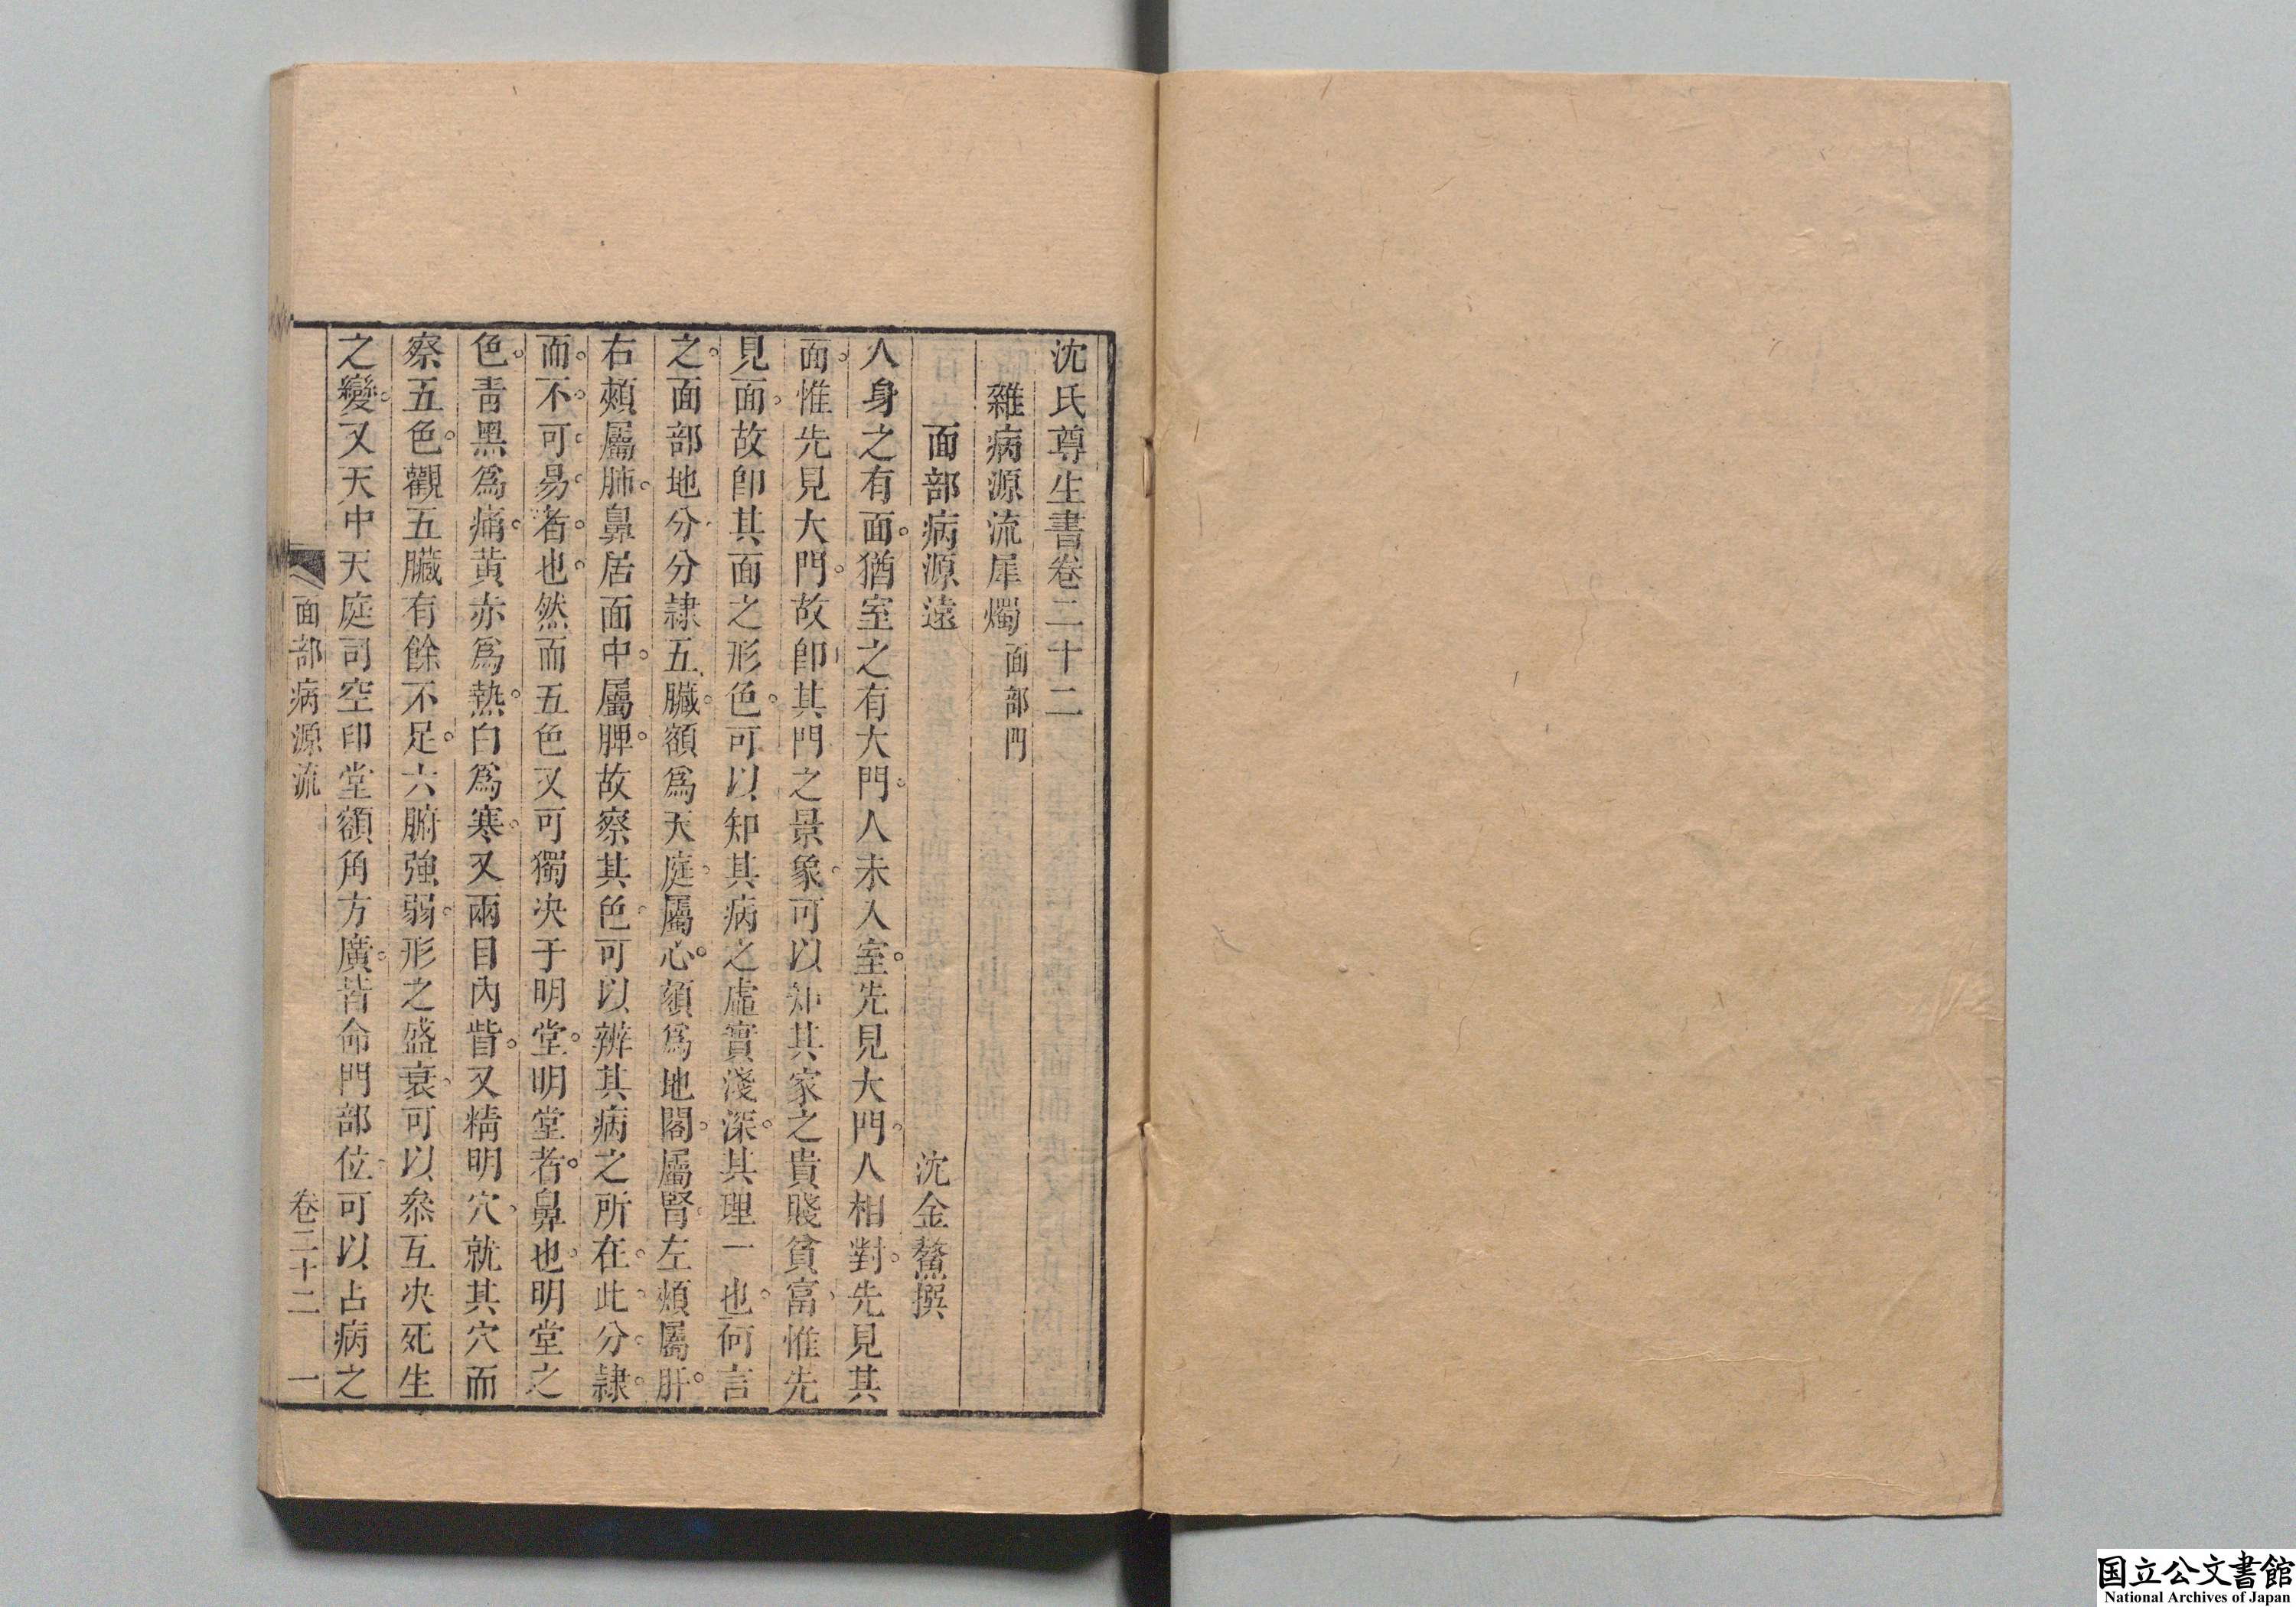 沈氏尊生書卷二十二
雜病源流犀燭面部門
面部病源遠　沈金鰲撰
人身之有面。猶室之有大門。人未入室。先見大門。人相對。先見其
面。惟先見大門。故卽其門之景象。可以知其家之貴賤貧富。惟先
見面。故卽其面之形色。可以知其病之虛實淺深。其理一也。何言
之。面部地分。分隷五臟。額爲天庭。屬心。頦爲地閣。屬腎。左頰屬肝。
右頰屬肺。鼻居面中。屬脾。故察其色。可以辨其病之所在。此。分。隷。
而。不。可。易。者。也。然而五色又可獨决于明堂。明堂者。鼻也。明堂之
色。靑黑爲痛。黃赤爲熱。白爲寒。又兩目內眥。又精明穴。就其穴而
察五色。觀五臟有餘不足。六腑強弱。形之盛衰。可以叅互决死生
之變。又天中天庭司空印堂額角方廣。皆命門部位。可以占病之
面部病源流　卷二十二　一
国立公文書館
National Archives of Japan